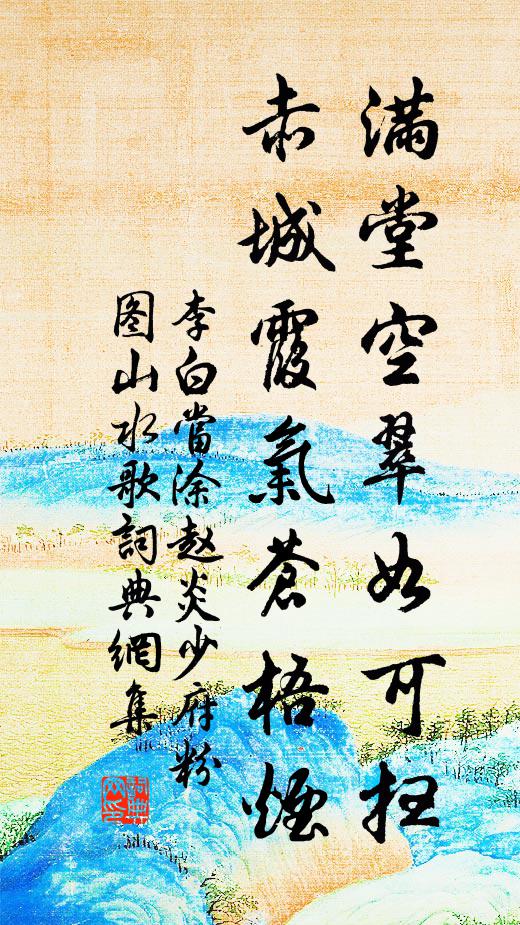 滿堂空翠如可扫
赤城霞氣蒼梧煙
李白當涂赵炎少府粉
图山水歌詞典網集